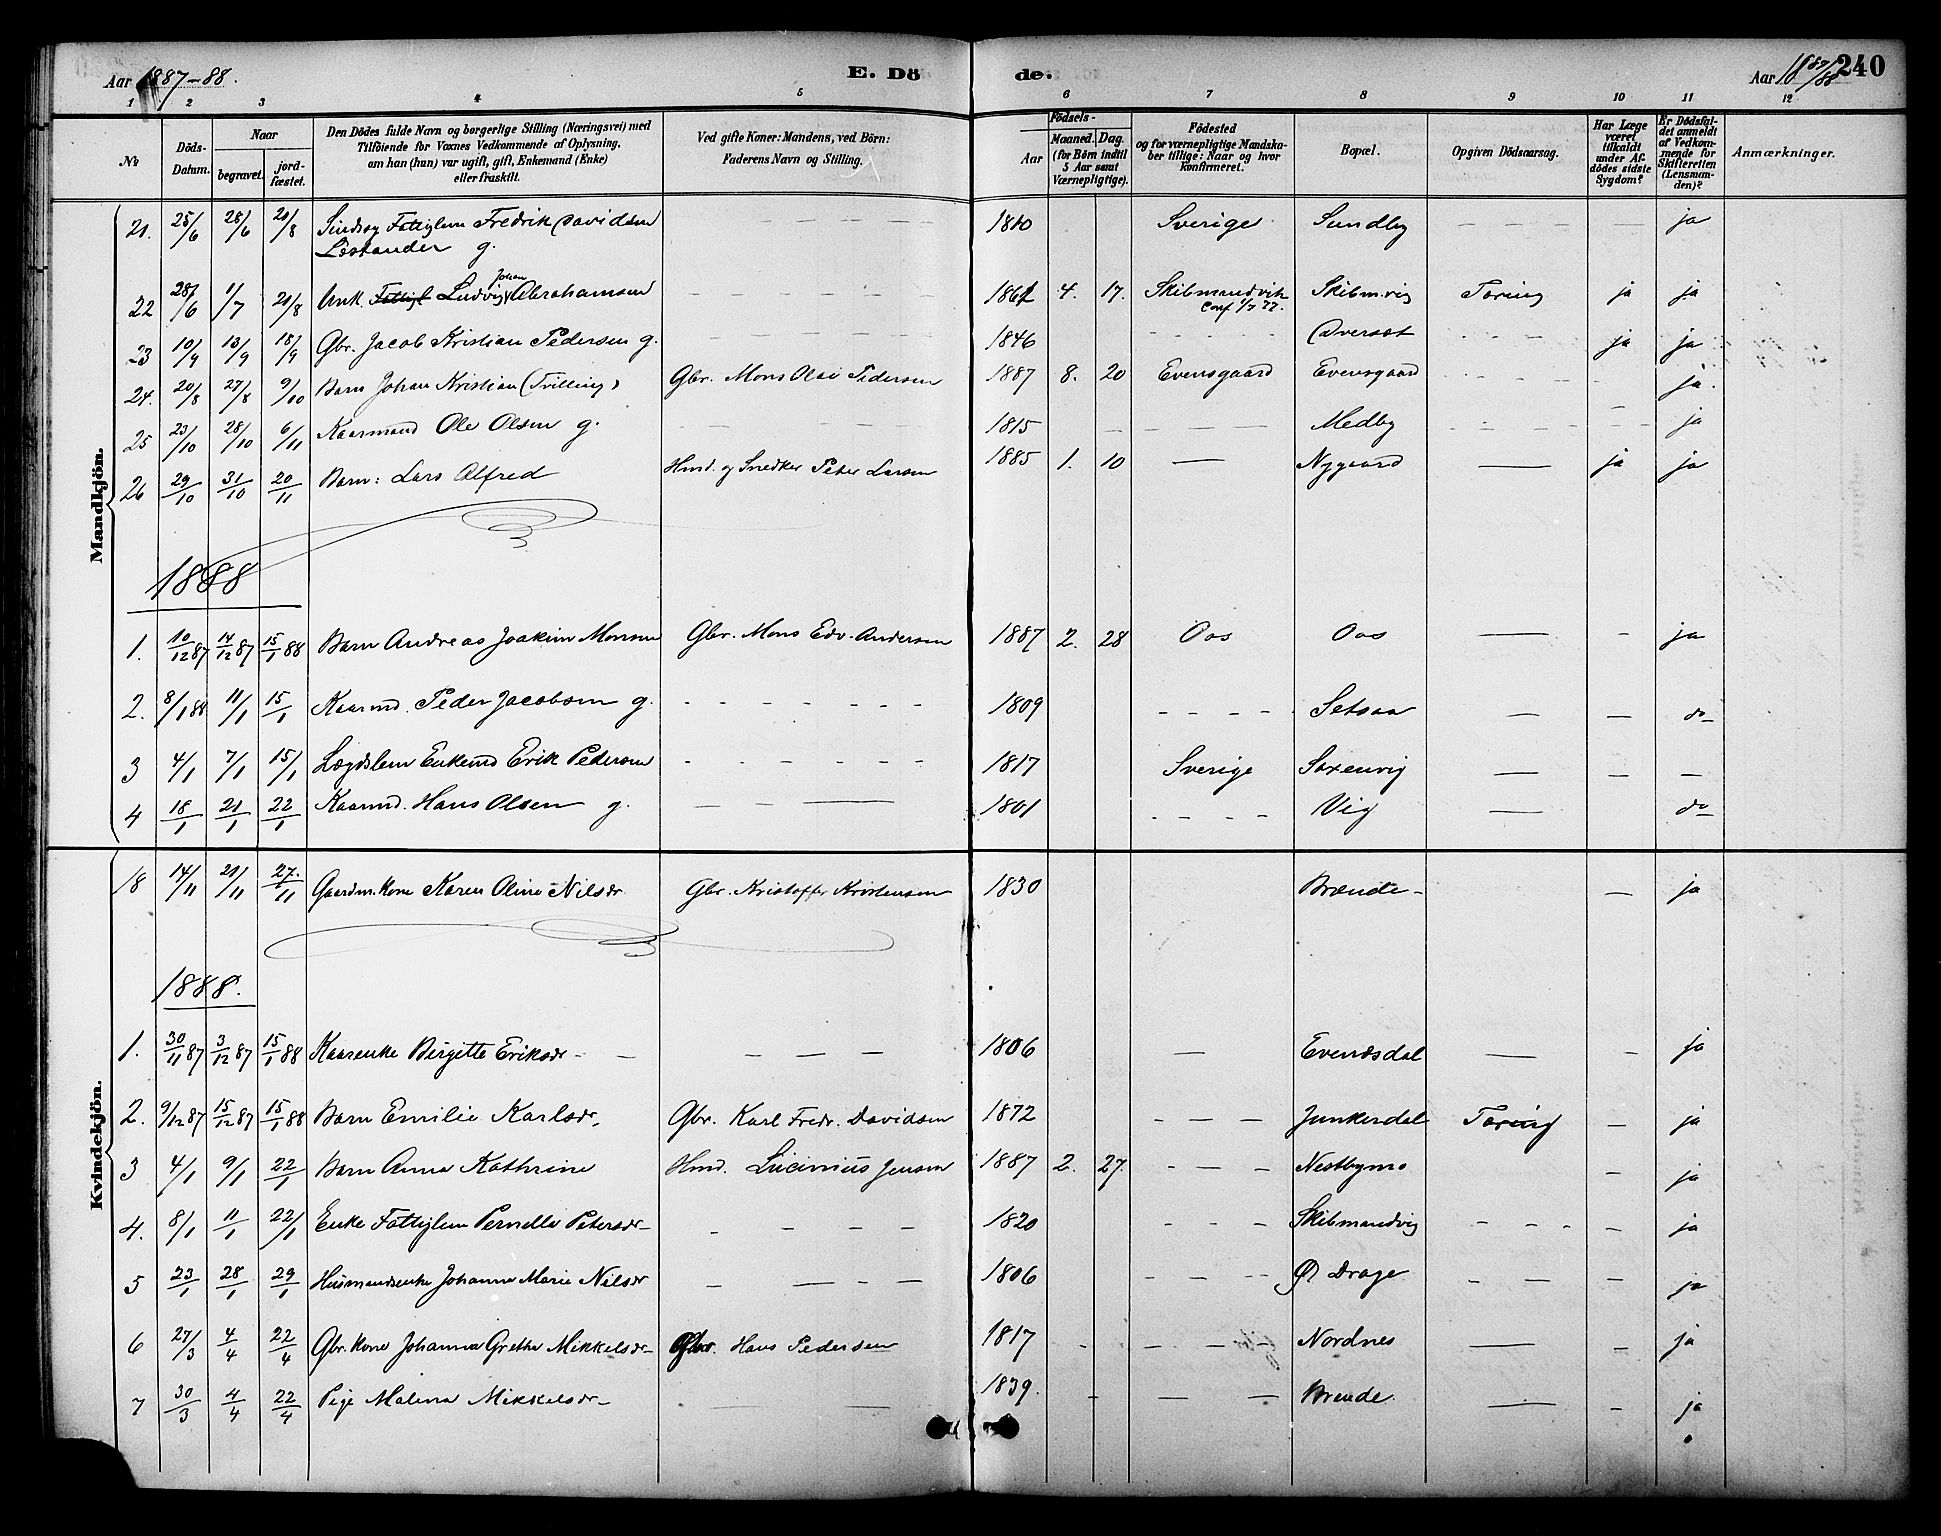 Aar 1887-88. E. Dö de. Aar 1887/88 240
1 2 3 4 5 6 7 8 9 10 11 12
No
Döds-Datum.
Naar
begravet.
jordfæstet.
Den Dödes fulde Navn og borgerlige Stilling (Næringsvei) med
Tilföiende for Voxnes Vedkommende af Oplysning,
om han (hun) var ugift, gift, Enkemand (Enke)
eller fraskilt.
Ved gifte Koner: Mandens, ved Börn:
Faderens Navn og Stilling.
Födsels-
Aar
Maaned. Dag.
(for Börn indtil
5 Aar samt
Værnepligtige).
Födested
og for værnepligtige Mandskaber tillige: Naar og hvor
konfirmeret.
Bopæl.
Opgiven Dödsaarsag.
Har Læge
været
tilkaldt
under Afdödes sidste
Sygdom?
Er Dödsfaldet anmeldt
af Vedkommende for
Skifteretten
(Lensmanden)?
Anmærkninger.
Mandkjön.
21. 25/6 28/6 21/8 Sindssy Fattiglem Fredrik Davidsen — — — — 1810 Sverige Sundby — — — — — ja
Lestander g.
22 28/6 1/7 21/8 Unk. Ludvig Johan Abrahamsen — — — — 1862 4. 17. Skibmandvik Skibm.vig Tæring ja ja
Conf 1/7 77.
23 10/9 13/9 18/9 Gbr. Jacob Kristian Pedersen g. — — — — 1846 - - - Øverset - - - ja ja
24. 20/8 27/8 9/10 Barn Johan Kristian (Trilling) Gbr. Mons Olai Pedersen 1887 8. 20 Evensgaard Evensgaard - - - - — ja.
25 23/10 28/10 6/11 Kaarmand Ole Olsen g. — — 1815 — — — — Medby - - - - — ja
26 29/10 31/10 20/11 Barn: Lars Alfred Hmd. og Snedker Peter Larsen 1885 1. 10 — Nygaard — ja ja
1888
1. 10/12 87 14/12 87 15/1 88 Barn Andreas Joakim Monsen Gbr. Mons Edv. Andersen 1887 2. 28 Oos Oos — - ja
2. 8/1 88 11/1 15/1 Kaarmd. Peder Jacobsen g. - - - - - - - 1809 - - - - Setsaa — — do
3 4/1 7/1 15/1 Lægdslem Enkemd Erik Pedersen - - - - - - 1817 Sverige Saxenvig — — —
4 18/1 21/1 22/1 Kaarmd. Hans Olsen g. — — — 1801 - - - - Vig — do
Kvindekjön.
18 14/11 21/11 27./11 Gaardm. Kone Karen Oline Nilsdr Gbr. Kristoffer Kristensen 1830 Brænde- — ja
1888.
1. 30/11 87 3/12 87 15/1 88 Kaarenke Birgitte Eriksdr - — — — — — 1806 — Evendsdal — - ja
2. 9/12 87 15/12 87 15/1 88 Barn Emilie Karlsdr, Gbr. Karl Fredr. Davidsen 1872 - - - Junkerdal Tæring — ja
3 4/1 9/1 22/1 Barn Anna Kathrine Hmd. Lucinius Jensen 1887 2. 27. - - - Nestbymo — ja
4. 8/1 11/1 22/1 Enke Fattiglem Pernelle Petersdr - — — — — 1820 - - - Skibmandvig - - - - — ja
5 23/1 28/1 29/1 Husmandsenke Johanna Marie Nilsdr — — - — 1806 - - - - Ø Drage - - - — ja
6 27/3 4/4 22/4 Gbr. Kone Johanna Grethe Mikkelsdr- Gbr. Hans Pedersen 1817 - - Nordnes — — ja
7 30/3 4/4 22/4 Pige Malena Mikkelsdr- — — 1839. - — — Brende — — ja